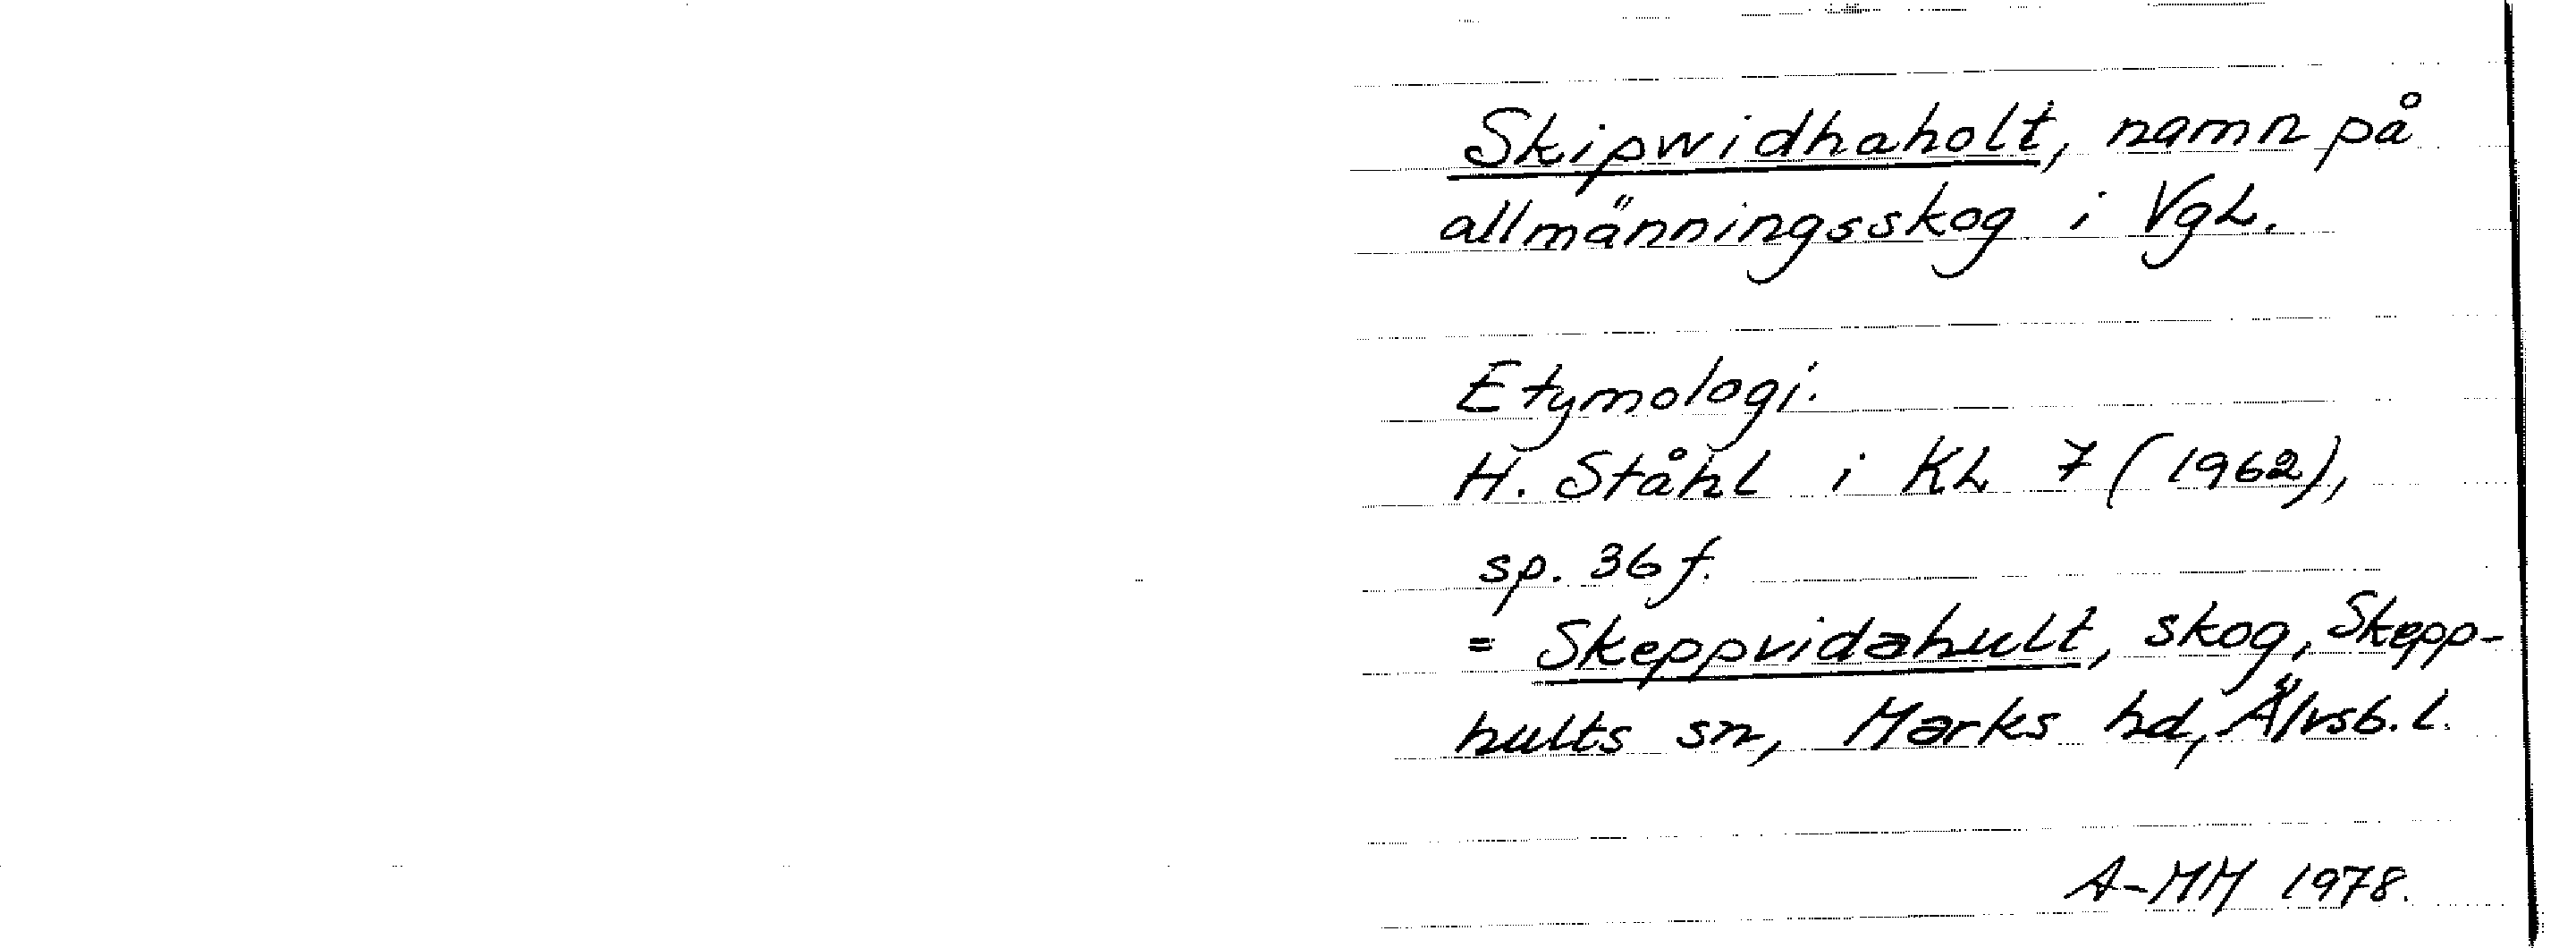 Skipwidhaholt, namn på
allmänningsskog i VgL.
Etymologi.
H. Ståhl i KL 7 (1962),
sp. 36 f.
= Skeppvidahult, skog, Skepp-
hults sn, Marks hd, Älvsb. l.
A-MM 1978.